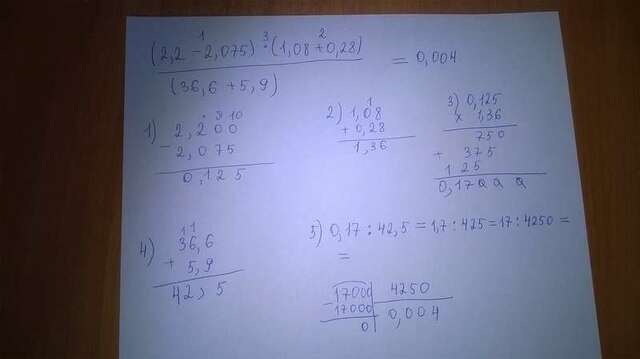 1 3 2
(2,2 - 2,075) · (1,08 + 0,28)
(36,6 + 5,9)
= 0,004
1) 2,200
9 10
- 2,075
0,125
2) 1,08
1
+ 0,28
1,36
3) 0,125
x 1,36
750
+ 375
125
0,17000
4) 36,6
11
+ 5,9
42,5
5) 0,17 : 42,5 = 1,7 : 425 = 17 : 4250 =
=
- 17000 4250
17000 0,004
0